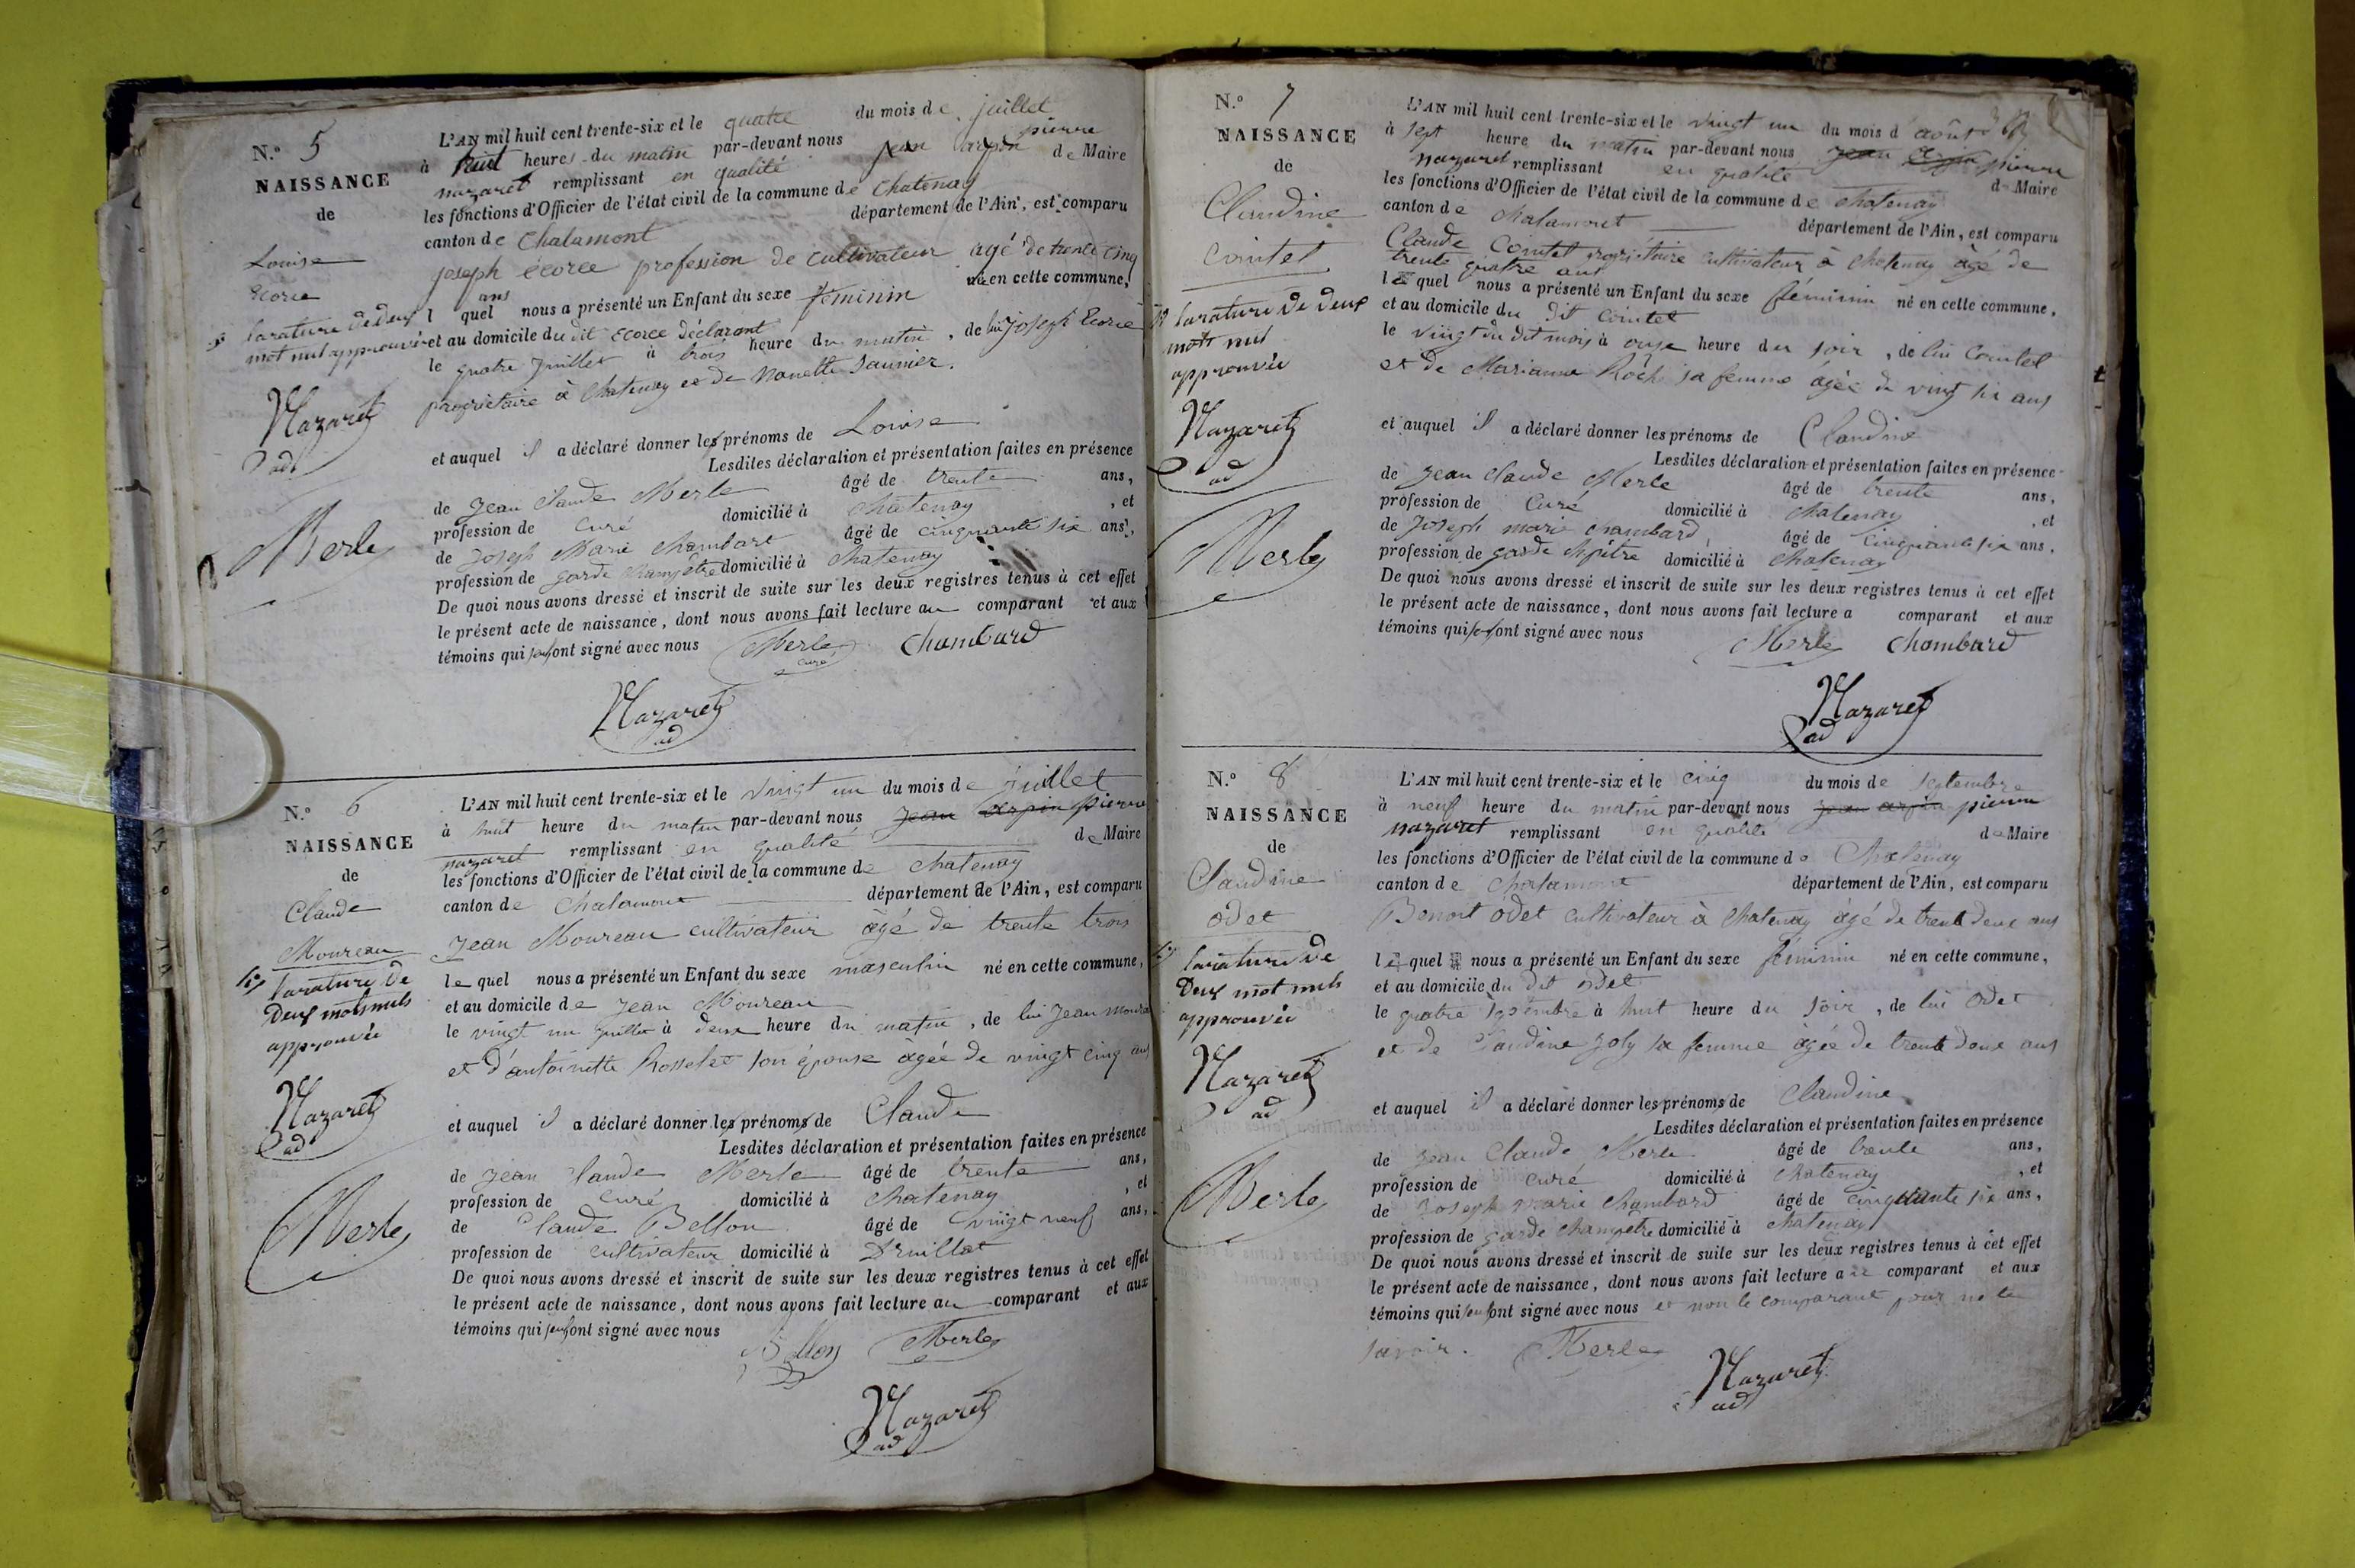 N.° 5
NAISSANCE
de
Louise
Ecorce
la rature de deux
mot nul approuvée
Nazaret
ad
Merle
L'AN mil huit cent trente-six et le quatre du mois de juillet
à huit heures du matin par-devant nous jean arpin pierre
nazaret remplissant en qualité de Maire
les fonctions d'Officier de l'état civil de la commune de Chatenay
canton de Chalamont département de l'Ain, est comparu
joseph écorce profession de cultivateur agé de trente cinq
ans
l quel nous a présenté un Enfant du sexe féminin né en cette commune,
et au domicile du dit Ecorce déclarant
le quatre Juillet à trois heure du matin, de lui joseph Ecorce
propriétaire à Chatenay et de Nanette Saunier.
et auquel il a déclaré donner les prénoms de Louise
Lesdites déclaration et présentation faites en présence
de Jean Claude Merle âgé de trente ans,
profession de curé domicilié à chatenay, et
de Joseph Marie Chambart âgé de cinquante six ans,
profession de garde champêtre domicilié à chatenay
De quoi nous avons dressé et inscrit de suite sur les deux registres tenus à cet effet
le présent acte de naissance, dont nous avons fait lecture au comparant et aux
témoins qui seuls ont signé avec nous
Merle curé Chambard
Nazaret
ad
N.° 6
NAISSANCE
de
Claude
Moureau
la rature de
Deux mots nuls
approuvée
Nazaret
ad
Merle
L'AN mil huit cent trente-six et le vingt un du mois de juillet
à huit heure du matin par-devant nous jean arpin pierre
nazaret remplissant en qualité de Maire
les fonctions d'Officier de l'état civil de la commune de chatenay
canton de Chalamont département de l'Ain, est comparu
Jean Moureau cultivateur âgé de trente trois
le quel nous a présenté un Enfant du sexe masculin né en cette commune,
et au domicile de Jean Moureau
le vingt un juillet à deux heure du matin, de lui Jean
et d'antoinette Rosselet son épouse âgée de vingt cinq ans
et auquel il a déclaré donner les prénoms de Claude
Lesdites déclaration et présentation faites en présence
de Jean Claude Merle âgé de trente ans,
profession de curé domicilié à chatenay, et
de Claude Bellon âgé de vingt neuf ans,
profession de cultivateur domicilié à Druillat
De quoi nous avons dressé et inscrit de suite sur les deux registres tenus à cet effet
le présent acte de naissance, dont nous avons fait lecture au comparant et aux
témoins qui seuls ont signé avec nous
Bellon Merle
Nazaret
ad
N.° 7
NAISSANCE
de
Claudine
Cointet
la rature de deux
mots nul
approuvée
Nazaret
ad
Merle
L'AN mil huit cent trente-six et le vingt un du mois d août
à sept heure du matin par-devant nous jean arpin pierre
nazaret remplissant en qualité de Maire
les fonctions d'Officier de l'état civil de la commune de chatenay
canton de chalamont département de l'Ain, est comparu
Claude Cointet propriétaire cultivateur à chatenay âgé de
trente quatre ans
le quel nous a présenté un Enfant du sexe féminin né en cette commune,
et au domicile du dit Cointet
le vingt du dit mois à onze heure du soir, de lui Cointet
et de Marianne Roch sa femme âgée de vingt six ans
et auquel il a déclaré donner les prénoms de Claudine
Lesdites déclaration et présentation faites en présence
de Jean Claude Merle âgé de trente ans,
profession de curé domicilié à chatenay, et
de Joseph marie chambard, âgé de cinquante six ans,
profession de garde domicilié à chatenay
De quoi nous avons dressé et inscrit de suite sur les deux registres tenus à cet effet
le présent acte de naissance, dont nous avons fait lecture a comparant et aux
témoins qui ont signé avec nous
Merle Chambard
Nazaret
ad
N.° 8
NAISSANCE
de
Claudine
odet
la rature de
Deux mot nuls
approuvée
Nazaret
ad
Merle
L'AN mil huit cent trente-six et le cinq du mois de septembre
à neuf heure du matin par-devant nous jean arpin pierre
nazaret remplissant en qualité de Maire
les fonctions d'Officier de l'état civil de la commune de Chatenay
canton de chalamont département de l'Ain, est comparu
Benoit odet cultivateur à chatenay âgé de trente deux ans
le quel nous a présenté un Enfant du sexe féminin né en cette commune,
et au domicile du dit odet
le quatre septembre à huit heure du soir, de lui Odet
et de Claudine Joly sa femme âgée de trente deux ans
et auquel il a déclaré donner les prénoms de Claudine
Lesdites déclaration et présentation faites en présence
de Jean Claude Merle âgé de trente ans,
profession de curé domicilié à chatenay, et
de Joseph marie Chambard âgé de cinquante six ans,
profession de garde champêtre domicilié à chatenay
De quoi nous avons dressé et inscrit de suite sur les deux registres tenus à cet effet
le présent acte de naissance, dont nous avons fait lecture au comparant et aux
témoins qui seuls ont signé avec nous et non le comparant pour ne le
savoir. Merle
Nazaret
ad